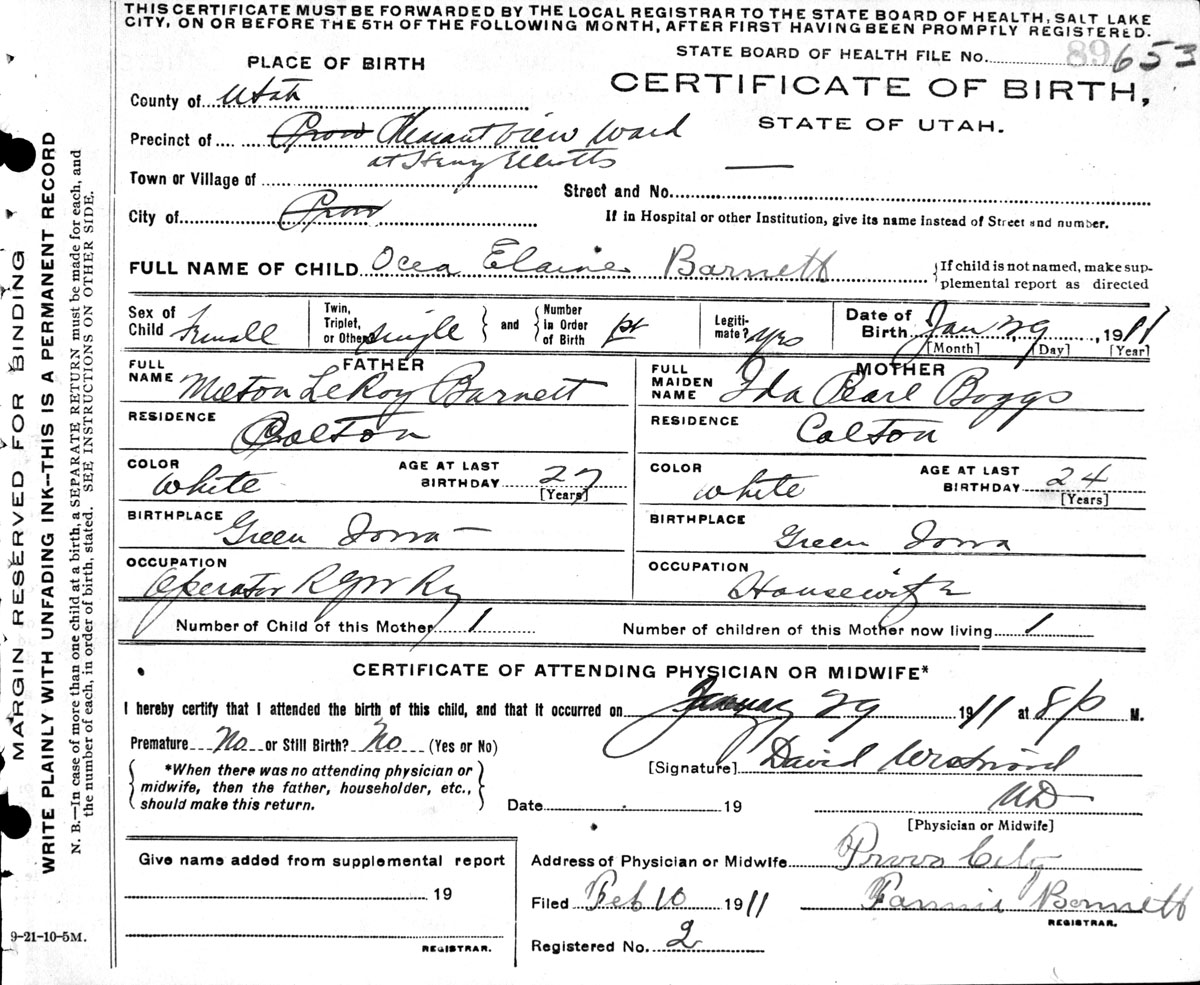 THIS CERTIFICATE MUST BE FORWARDED BY THE LOCAL REGISTRAR TO THE STATE BOARD OF HEALTH, SALT LAKE
CITY, ON OR BEFORE THE 5TH OF THE FOLLOWING MONTH, AFTER FIRST HAVING BEEN PROMPTLY REGISTERED.
STATE BOARD OF HEALTH FILE No. 89 653
PLACE OF BIRTH
CERTIFICATE OF BIRTH,
STATE OF UTAH.
County of Utah
Precinct of Provo Pleasant View Ward
at Henry Elliotts
Town or Village of
Street and No.
City of Provo
If in Hospital or other Institution, give its name instead of Street and number.
FULL NAME OF CHILD Ocea Elaine Barnett
If child is not named, make sup-
plemental report as directed
Sex of Child Female
Twin, Triplet, or Other single
and
Number in Order of Birth 1st
Legiti-mate? yes
Date of Birth Jan 29, 1911
[Month] [Day] [Year]
FATHER
FULL NAME Milton LeRoy Barnett
RESIDENCE Colton
COLOR White
AGE AT LAST BIRTHDAY 27
[Years]
BIRTHPLACE Green Iowa
OCCUPATION Operator RGW Ry
MOTHER
FULL MAIDEN NAME Ida Pearl Boggs
RESIDENCE Colton
COLOR White
AGE AT LAST BIRTHDAY 24
[Years]
BIRTHPLACE Green Iowa
OCCUPATION Housewife
Number of Child of this Mother 1
Number of children of this Mother now living 1
CERTIFICATE OF ATTENDING PHYSICIAN OR MIDWIFE*
I hereby certify that I attended the birth of this child, and that it occurred on January 29 1911 at 8 P M.
Premature No or Still Birth? No (Yes or No)
*When there was no attending physician or
midwife, then the father, householder, etc.,
should make this return.
[Signature] David Westwood
MD
Date 19
[Physician or Midwife]
Give name added from supplemental report
19
REGISTRAR.
Address of Physician or Midwife Provo City
Filed Feb 10 1911 Fannie Bennett
REGISTRAR.
Registered No. 2
9-21-10-5M.
MARGIN RESERVED FOR BINDING
WRITE PLAINLY WITH UNFADING INK--THIS IS A PERMANENT RECORD
N. B.—In case of more than one child at a birth, a SEPARATE RETURN must be made for each, and
the number of each, in order of birth, stated. SEE INSTRUCTIONS ON OTHER SIDE.